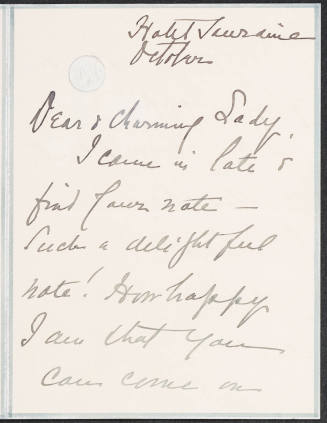 Hotel Touraine
October
Dear & charming Lady,
I came in late &
find your note —
Such a delightful
note! How happy
I am that you
can come on